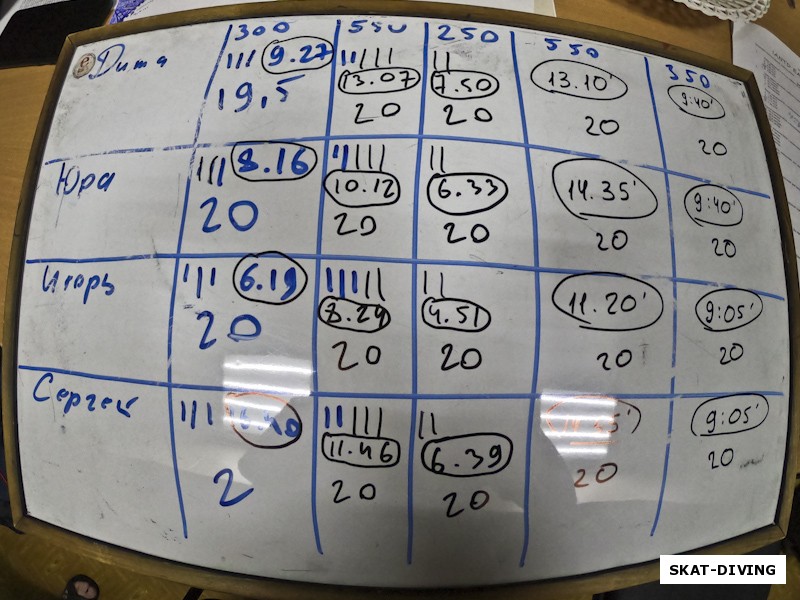 300 550 250 550 350
Дима ||| 9.27 |||||| 13.07 || 7.50 13.10' 9:40'
19,5 20 20 20 20
Юра ||| 8.16 ||||| 10.12 || 6.33 14.35' 9:40'
20 20 20 20 20
Игорь ||| 6.19 |||||| 8.29 || 4.51 11.20' 9:05'
20 20 20 20 20
Сергей ||| ||||| 11.46 || 6.39 9:05'
2 20 20 20 20
SKAT-DIVING